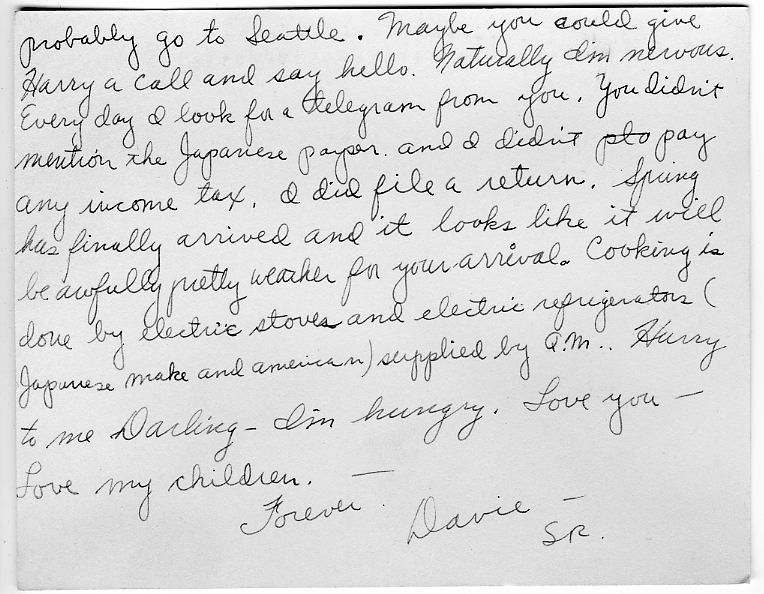 probably go to Seattle. Maybe you could give
Harry a call and say hello. Naturally I'm nervous.
Every day I look for a telegram from you. You didn't
mention the Japanese payper. and I didn't pto pay
any income tax. I did file a return. Spring
has finally arrived and it looks like it will
be awfully pretty weather for your arrival. Cooking is
done by electric stoves and electric refrigerators (
Japanese make and american) supplied by Q.M.. Hurry
to me Darling - I'm hungry. Love you —
Love my children. —
Forever. Davie —
SR.